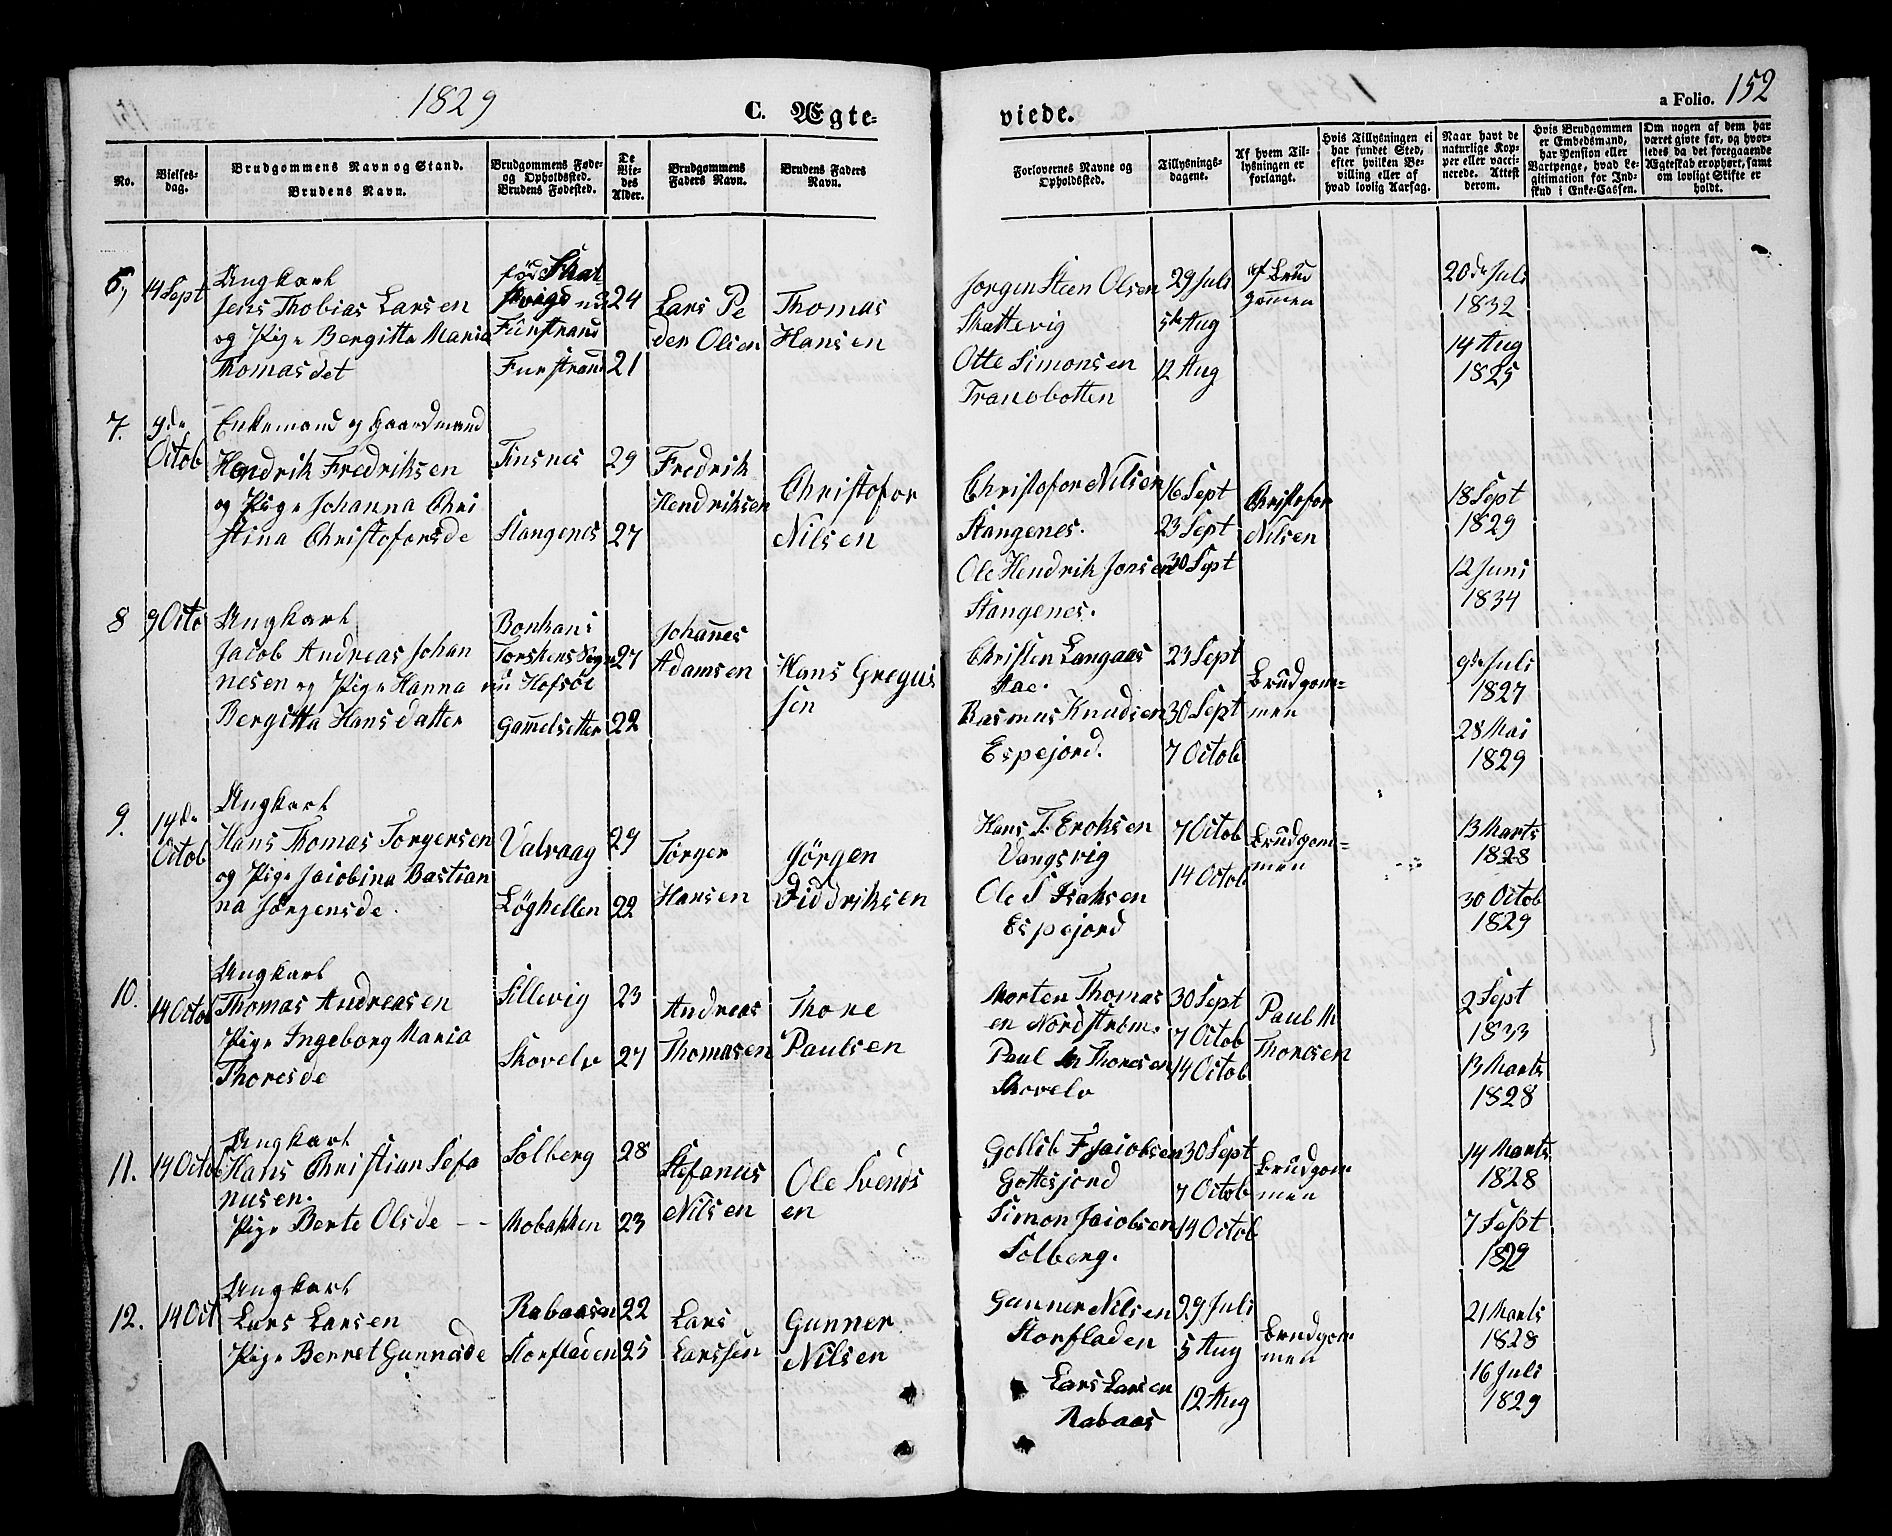 1829
C. Ægte-
viede.
a Folio. 152
No.
Vielses-
dag.
Brudgommens Navn og Stand.
Brudens Navn.
Brudgommens Føde-
og Opholdssted.
Brudens Fødested.
De
Vie-
des
Alder.
Brudgommens
Faders Navn.
Brudens Faders
Navn.
Forlovernes Navne og
Opholdssted.
Tillysnings-
dagene.
Af hvem Til-
lysningen er
forlangt.
Hvis Tillysningen ei
har fundet Sted,
efter hvilken Be-
villing eller af
hvad lovlig Aarsag.
Naar havt de
naturlige Kop-
per eller vacci-
nerede. Attest
derom.
Hvis Brudgommen
er Embedsmand,
har Pension eller
Vartpenge, hvad Le-
gitimation for Ind-
skud i Enke-Cassen.
Om nogen af dem har
været givte før, og hvor-
ledes da det foregaaende
Ægteskab erophørt, samt
om lovligt Skifte er
holdt.
6,
14 Sept
Ungkarl
Jens Thobias Larsen
og Pige Bergitte Maria
Thomasdet
Finstrand
Furstrand
24
21
Lars Pe
der Olsen
Thomas
Hansen
Jørgen Steen Olsen
Skattevig
Otte Simonsen
Tranobotten
29 Juli
5te Aug
12 Aug
af Brud
gom̄en
20de Juli
1832
14 Aug
1825
7.
9de
Octob
Enkemand og Gaardmand
Hendrik Fredriksen
og Pige Johanna Chri
stina Christofersde
Finsnes
Stangenes
29
27
Fredrik
Hendriksen
Christofor
Nilsen
Christofor Nilsen
Stangenes.
Ole Hendrik Jonsen
Stangenes.
16 Sept
23 Sept
30 Sept
Christofor
Nilsen
18 Sept
1829
12 Juni
1834
8
9 Octo
Ungkarl
Jacob Andreas Johan
nesen og Pige Hanna
Bergitta Hansdatter
Bonhans
Torskens Sogn
nu Hofsöe
Gam̄elsetter
27
22
Johan̄es
Adamsen
Hans Gregus
sen
Christen Langaas
Aae.
Rasmus Knudsen
Espejord.
23 Sept
30 Sept
7 Octob
Brudgom=
men
9de Juli
1827
28 Mai
1829
9.
14de
Octob
Ungkarl
Hans Thomas Torgersen
og Pige Jacobina Bastian
na Jørgensde.
Valvaag
Løghellen
29
22
Tørger
Hansen
Jørgen
Diddriksen
Hans T. Eroksen
Vangsvig
Ole S Isaksen
Espejord
7 Octob
14 Octob
Brudgom=
men
13 Marts
1828
30 Octob
1829
10.
14 Octob
Ungkarl
Thomas Andreasen
Pige Ingeborg Maria
Thoresde
Sillevig
Skovelv
23
27
Andreas
Thomasen
Thore
Paulsen
Morten Thomas
en Nordstrøm.
Paul M Thoresen
Skovelv
30 Sept
7 Octob
14 Octob
Paul M
Thoresen
2 Sept
1833
13 Marts
1828
11.
14 Octob
Ungkarl
Hans Christian Sefa
nusen.
Pige Berte Olsde - -
Solberg
Mobakken
28
23
Stefanus
Nilsen
Ole Svends
en
Gollib F Jacobsen
Gottesjord
Simon Jacobsen
Solberg.
30 Sept
7 Octob
14 Octob
Brudgom=
men
14 Marts
1828
7 Sept
1829
12.
14 Oct
Ungkarl
Lars Larsen
Pige Berret Gunnade
Rabaasen
Storfladen
22
25
Lars
Larssen
Gunner
Nilsen
Gunner Nilsen
Storfladen
Lars Larsen
Rabaas
29 Juli
5 Aug
12 Aug
Brudgom=
men
21 Marts
1828
16 Juli
1829